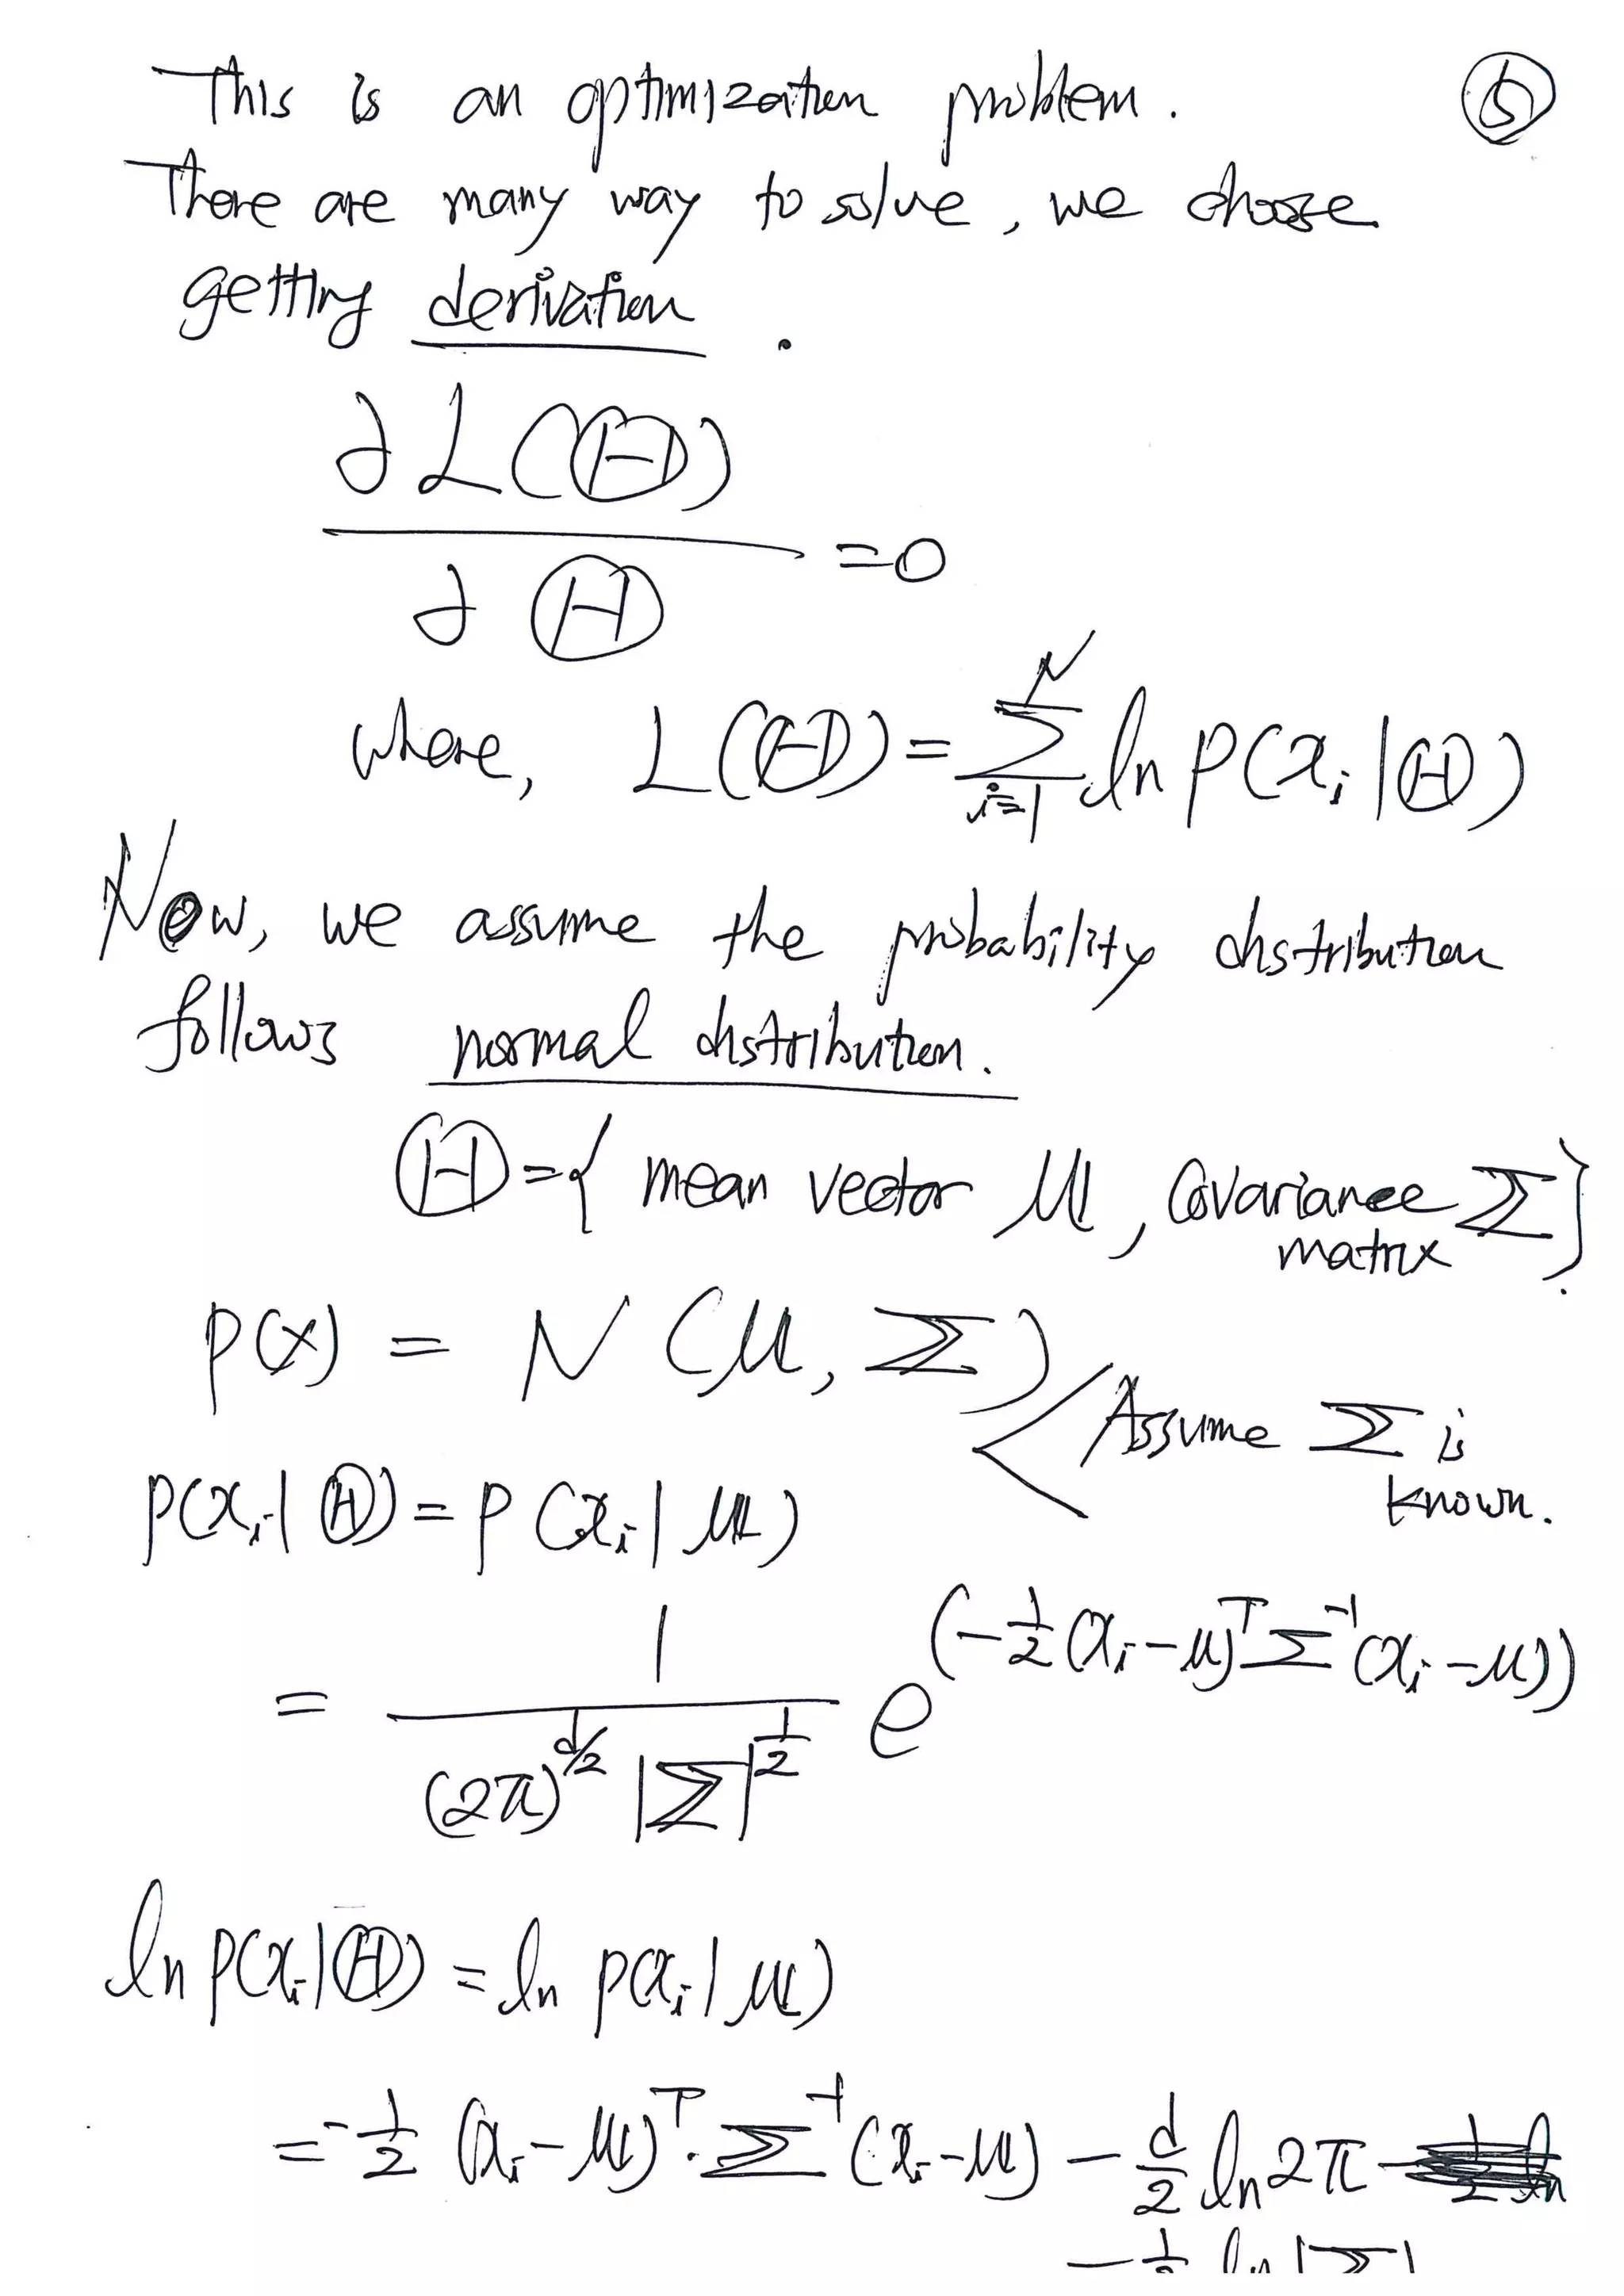 This is an optimization problem. ⑤
There are many way to solve, we choose
getting derivation.
∂L(Θ)
∂Θ =0
where, L(Θ) = Σ_{i=1}^{N} ln p(x_i | Θ)
Now, we assume the probability distribution
follows normal distribution.
Θ = { mean vector μ, Covariance matrix Σ }.
p(x) = N(μ, Σ)
Assume Σ is
known.
p(x_i | Θ) = p(x_i | μ)
= 1 / ((2π)^{d/2} |Σ|^{1/2}) e^{(-1/2 (x_i - μ)^T Σ^{-1} (x_i - μ))}
ln p(x_i | Θ) = ln p(x_i | μ)
= -1/2 (x_i - μ)^T · Σ^{-1} (x_i - μ) - d/2 ln 2π
- 1/2 ln |Σ|